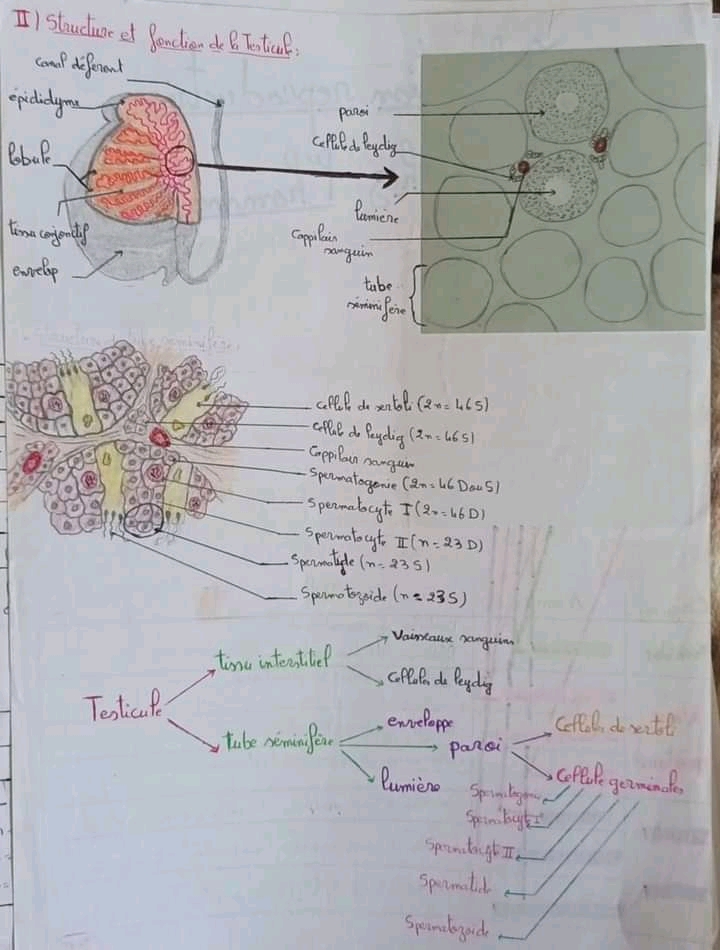 II) Structure et fonction de la Testicule:
canal déférent
épididyme
lobule
tissu conjoctif
envelop
paroi
Cellule de leydig
lumière
Cappilair
sanguin
tube
séminifère
Cellule de sertoli (2n=46S)
Cellule de leydig (2n=46S)
Cappilair sanguin
Spermatogonie (2n=46 D ou S)
Spermatocyte I (2n=46D)
Spermatocyte II (n=23D)
Spermatide (n=23S)
Spermatozoide (n=23S)
Testicule
tissu interstitiel
Vaisseaux sanguins
Cellules de leydig
tube séminifère
enveloppe
paroi
lumière
Cellules de sertoli
Cellule germinales
Spermatogonie
Spermatocyte I
Spermatocyte II
Spermatide
Spermatozoide